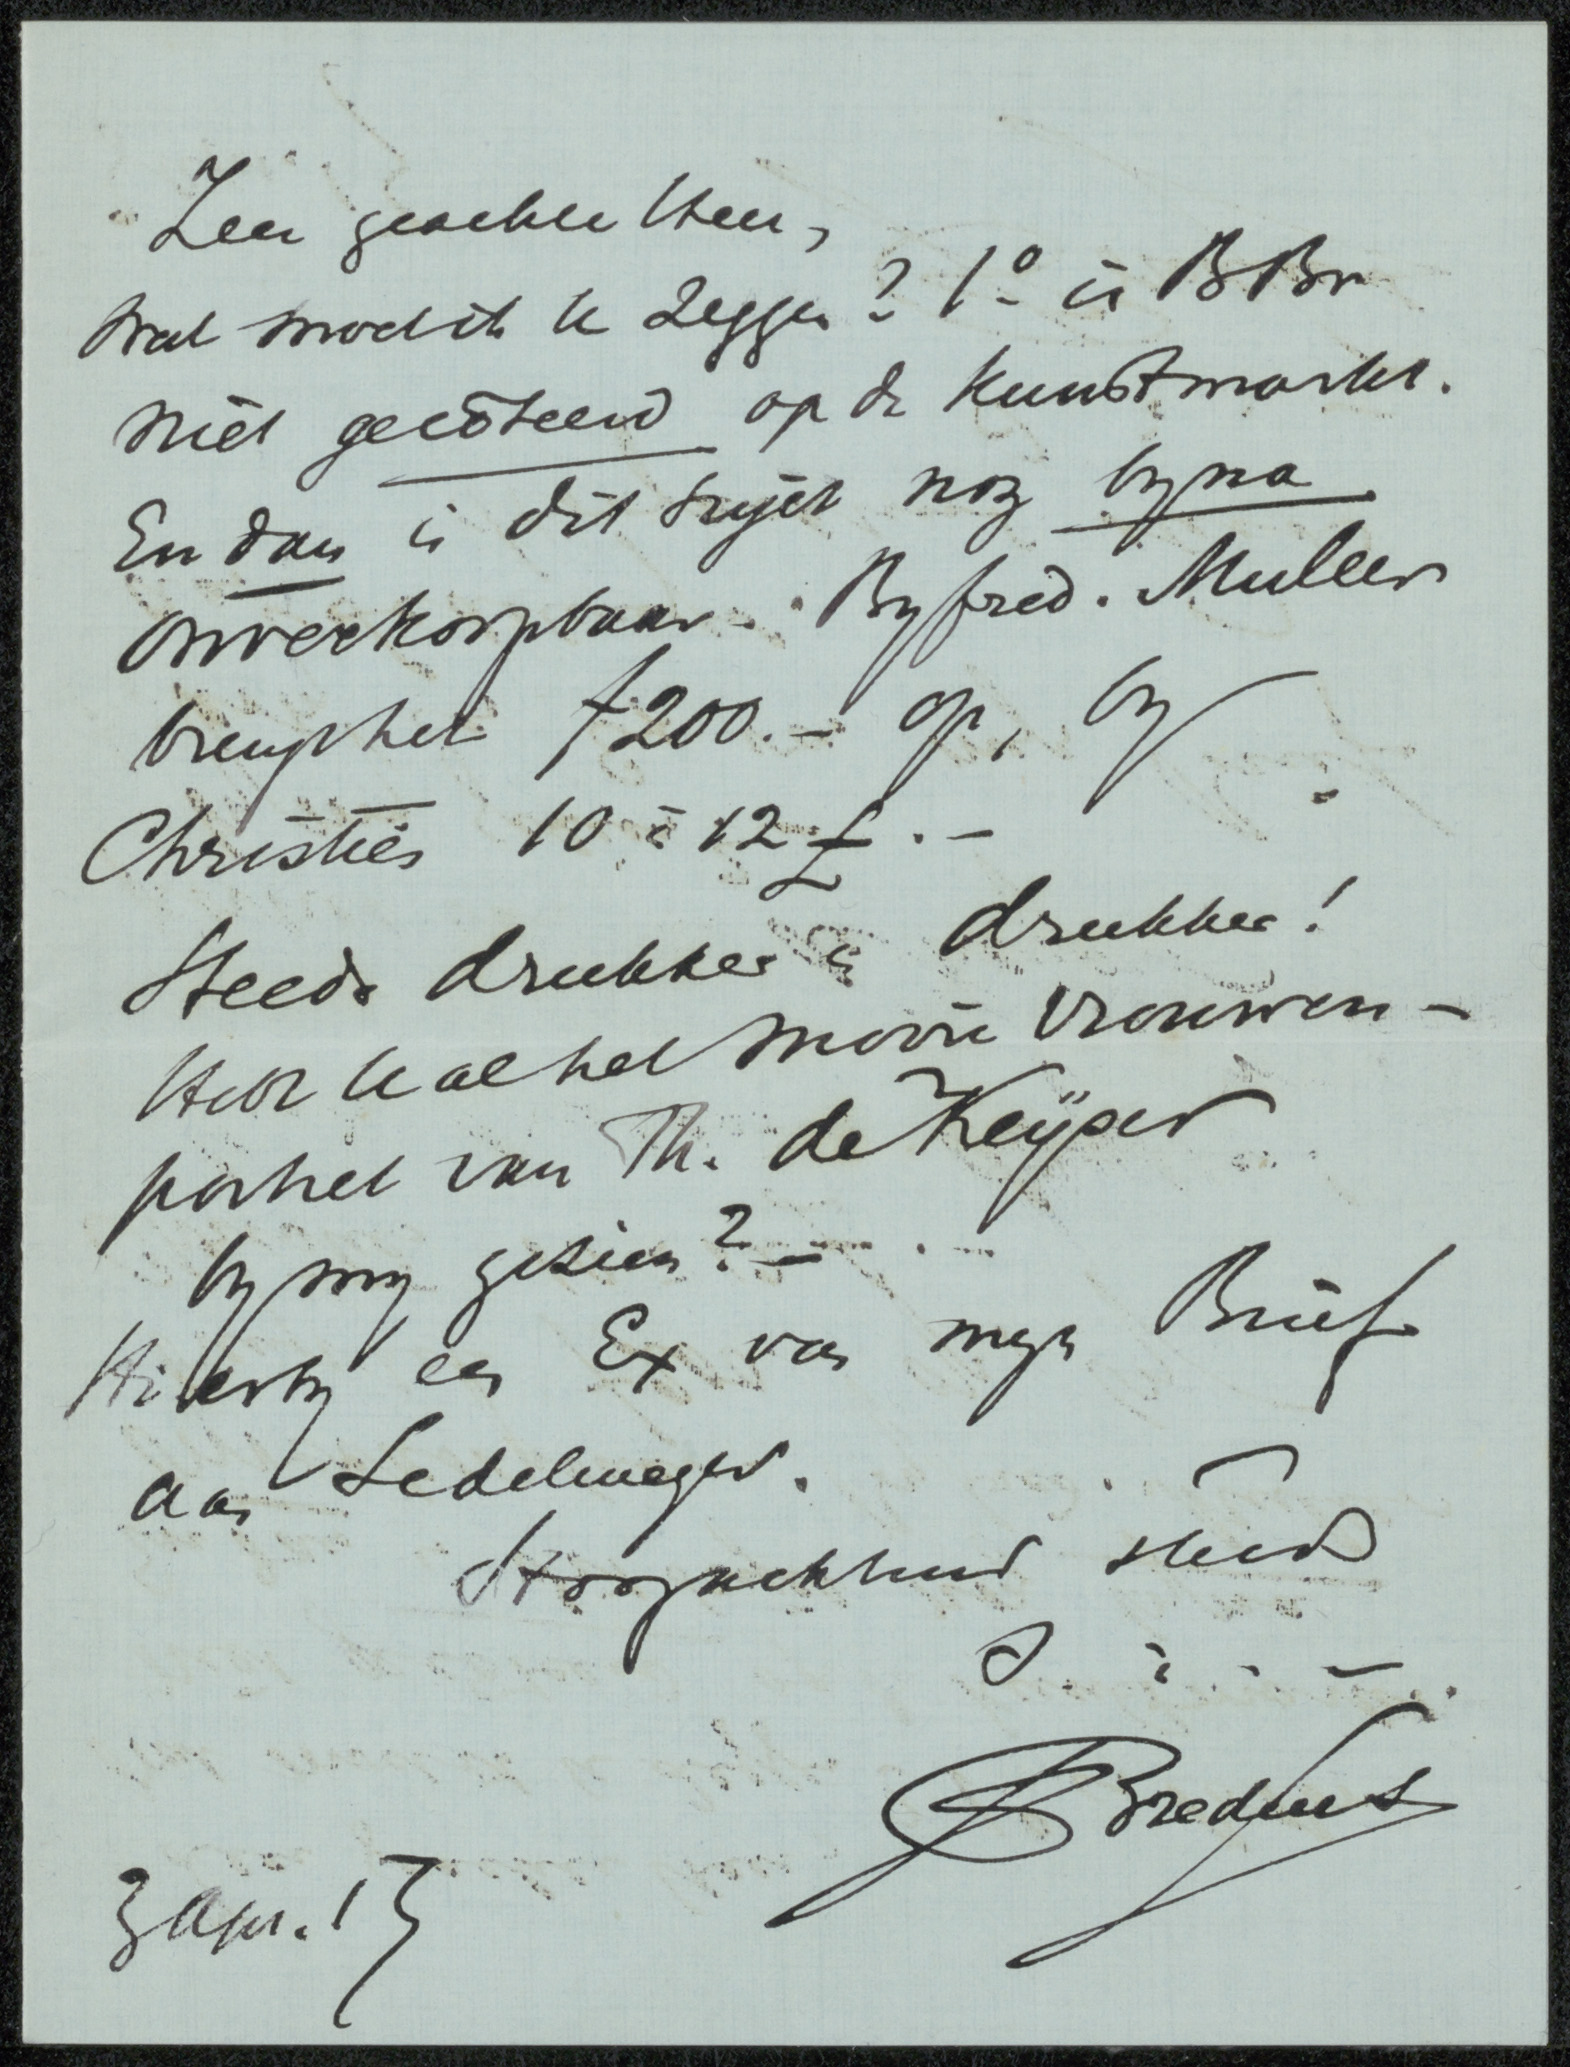 Zeer geachte Heer,
Wat moet ik U zeggen? 1° is BBr
niet gecôteerd op de kunstmarkt.
En dan is dit sujet nog byna
onverkoopbaar. By Fred. Muller
brengt het f200.– op, by
Christies 10 à 12 £.–
Steeds drukker en drukker!
Hebt U al het mooie vrouwen-
portret van Th. de Keÿser
by my gezien? –
Hierby een Ex van myn Brief
aan Sedelmeyer.
Hoogachtend steeds
ABredius
3 Apr. 13